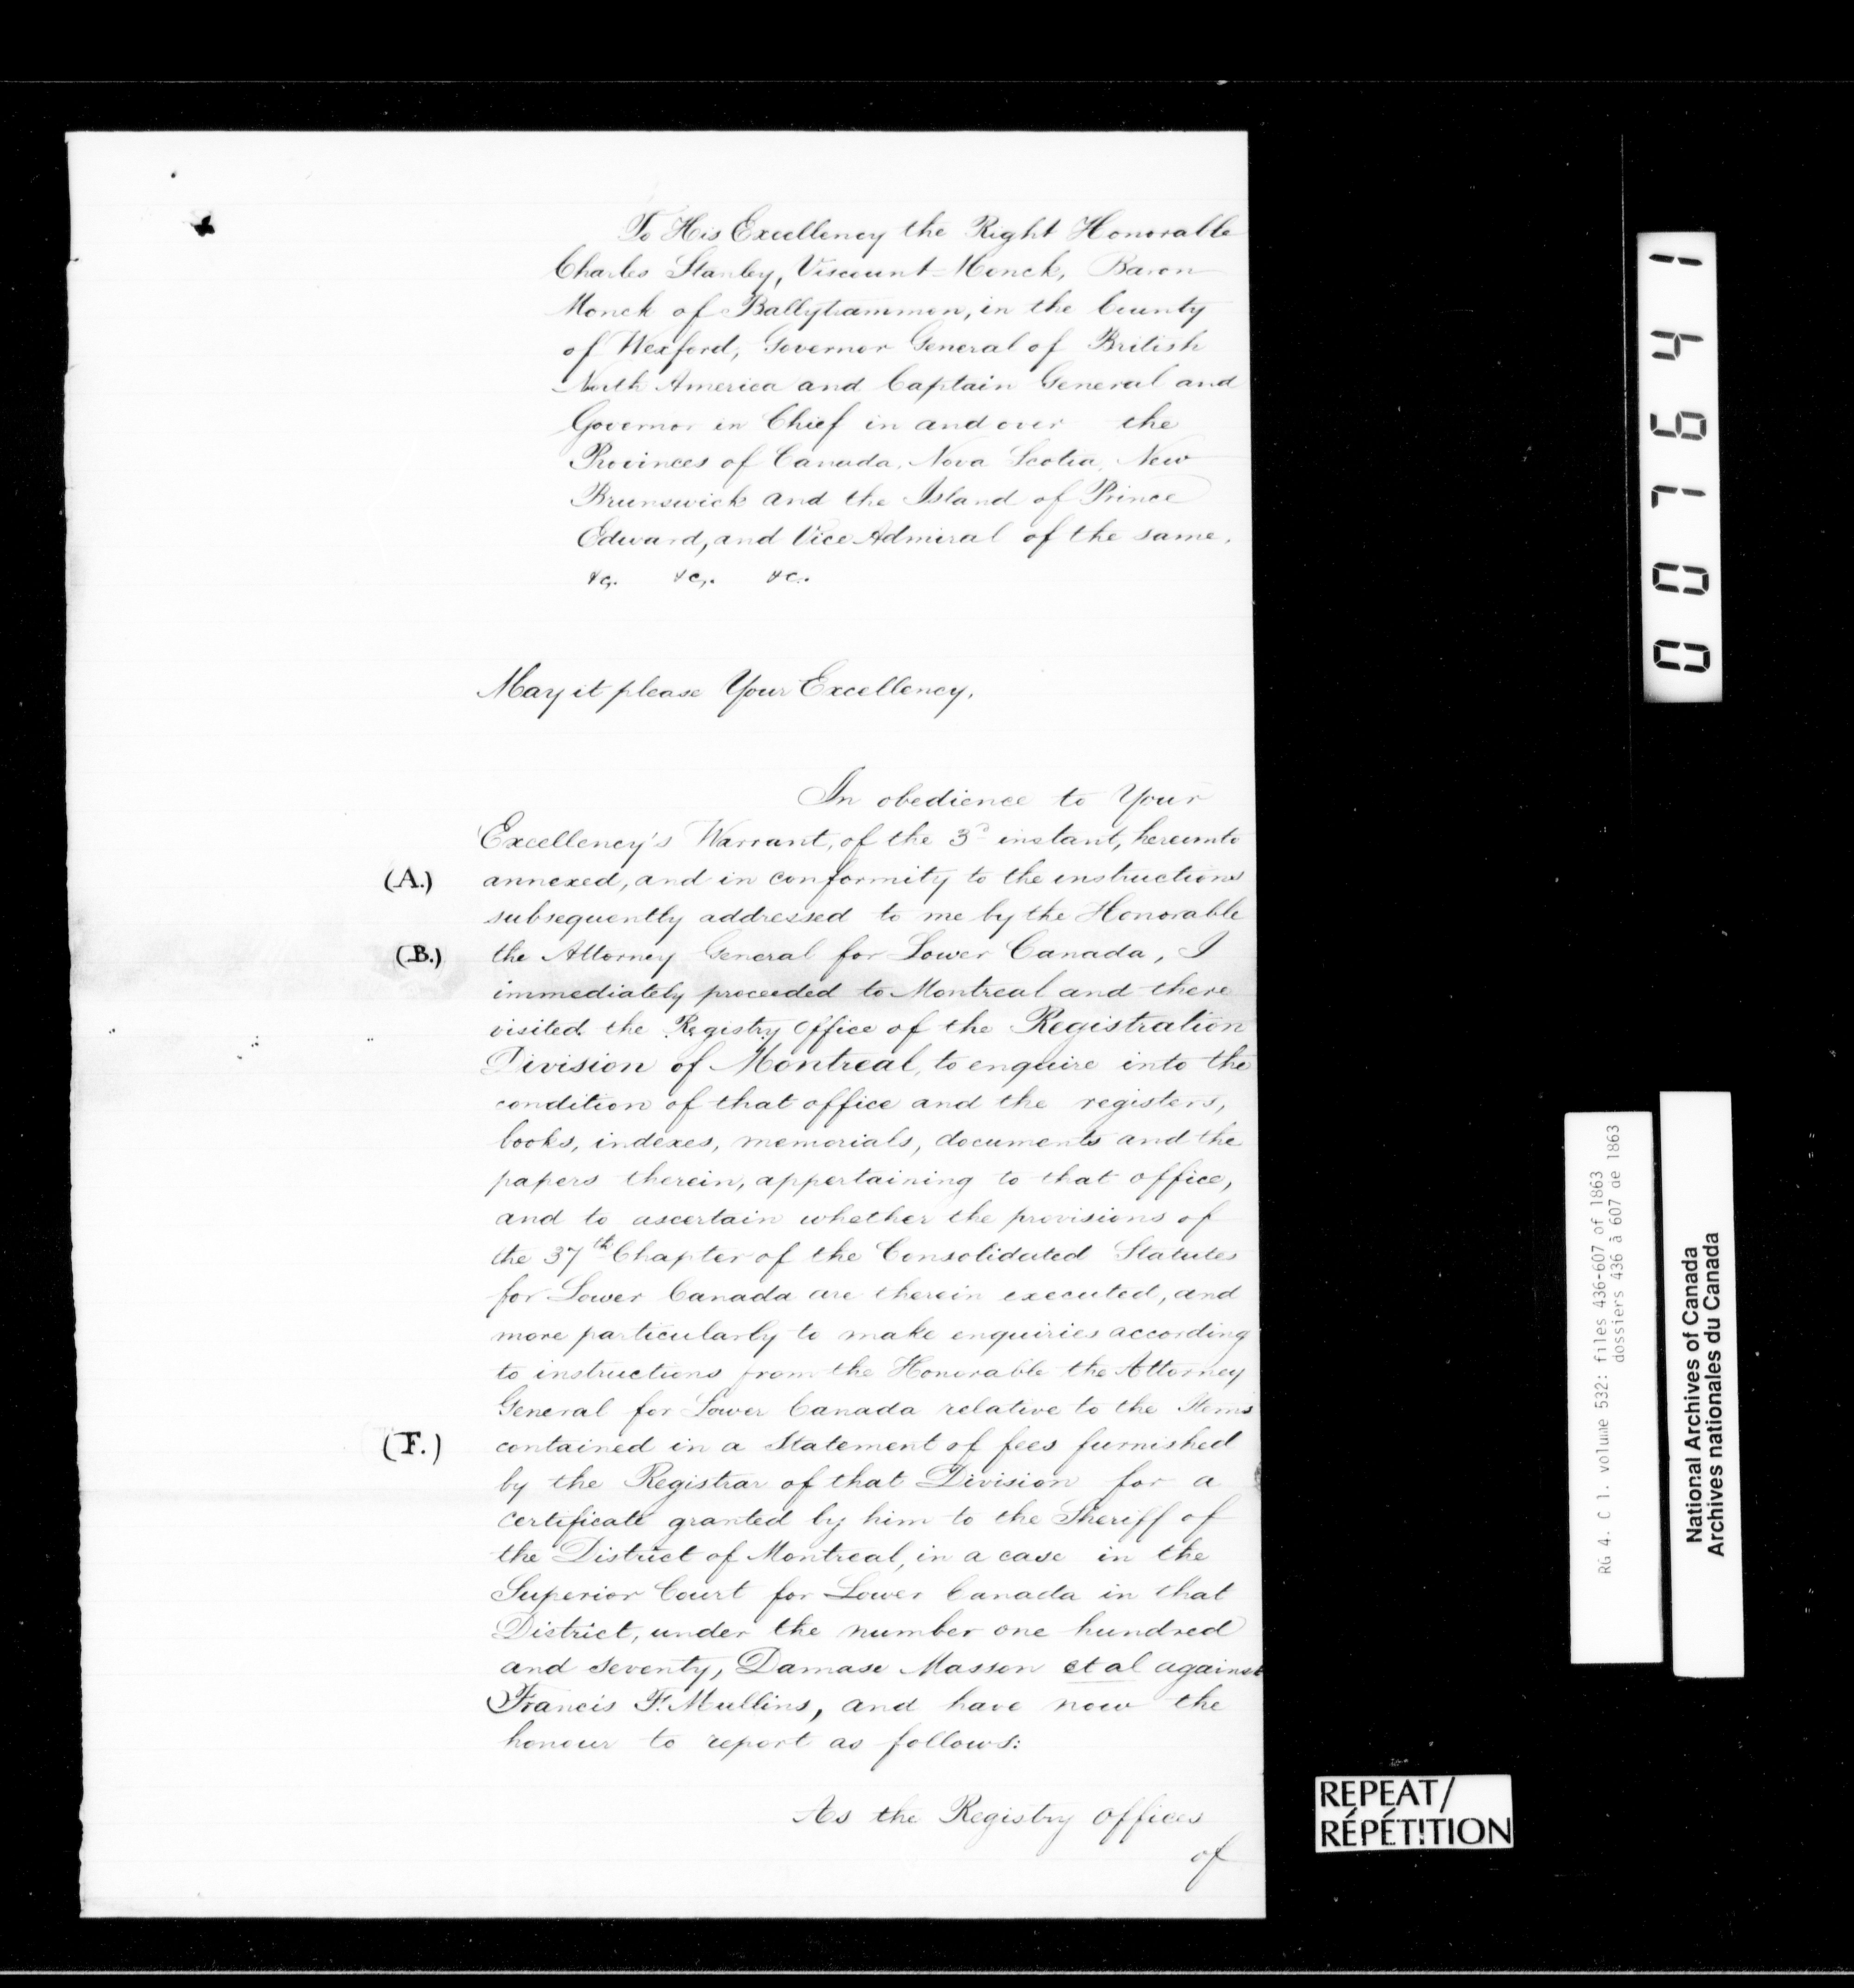 To His Excellency the Right Honorable
Charles Stanley, Viscount Monck, Baron
Monck of Ballytrammon, in the County
of Wexford, Governor General of British
North America and Captain General and
Governor in Chief in and over the
Provinces of Canada, Nova Scotia, New
Brunswick and the Island of Prince
Edward, and Vice Admiral of the same.
&c. &c. &c.
May it please Your Excellency,
In obedience to Your
Excellency's Warrant, of the 3d instant, hereunto
(A.) annexed, and in conformity to the instructions
subsequently addressed to me by the Honorable
(B.) the Attorney General for Lower Canada, I
immediately proceeded to Montreal and there
visited the Registry Office of the Registration
Division of Montreal, to enquire into the
condition of that office and the registers,
books, indexes, memorials, documents and the
papers therein, appertaining to that office,
and to ascertain whether the provisions of
the 37th Chapter of the Consolidated Statutes
for Lower Canada are therein executed, and
more particularly to make enquiries according
to instructions from the Honorable the Attorney
General for Lower Canada relative to the Items
(F.) contained in a Statement of fees furnished
by the Registrar of that Division for a
certificate granted by him to the Sheriff of
the District of Montreal, in a case in the
Superior Court for Lower Canada in that
District, under the number one hundred
and seventy, Damase Masson et al against
Francis F. Mullins, and have now the
honour to report as follows:
As the Registry Offices
of
007641
RG 4. C 1. volume 532: files 436-607 of 1863
dossiers 436 à 607 de 1863
National Archives of Canada
Archives nationales du Canada
REPEAT/
RÉPÉTITION